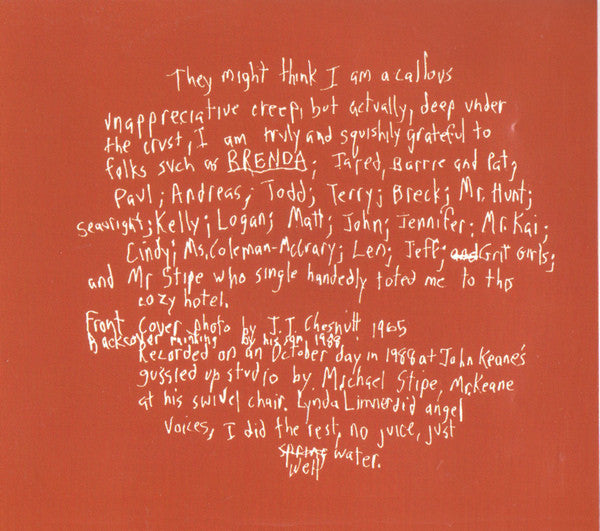 They might think I am a callous
unappreciative creep, but actually, deep under
the crust, I am truly and squishily grateful to
folks such as BRENDA; Jared, Barrie and Pat;
Paul; Andreas; Todd; Terry; Breck; Mr. Hunt;
seawright; Kelly; Logan; Matt; John; Jennifer; Mr. Kai;
Cindy; Ms. Coleman-McCrary; Len; Jeff; and Grit Girls;
and Mr Stipe who single handedly toted me to this
cozy hotel.
Front Cover photo by J.J. Chesnutt 1965
Backcover painting by his son 1988
Recorded on an October day in 1988 at John Keane's
guzzled up studio by Michael Stipe, Mr. Keane
at his swivel chair. Lynda Limner did angel
voices, I did the rest, no juice, just
spring water.
well